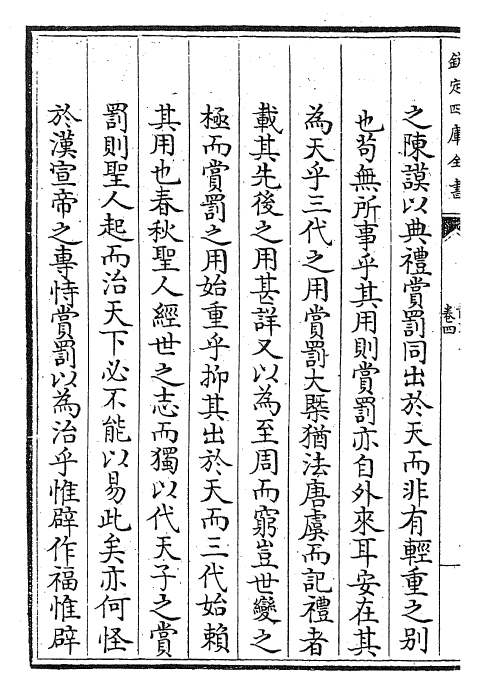 欽定四庫全書
卷四
之陳謨以典禮賞罰同出於天而非有輕重之别
也茍無所事乎其用則賞罰亦自外來耳安在其
為天乎三代之用賞罰大槩猶法唐虞而記禮者
載其先後之用甚詳又以為至周而窮豈世變之
極而賞罰之用始重乎抑其出於天而三代始賴
其用也春秋聖人經世之志而獨以代天子之賞
罰則聖人起而治天下必不能以易此矣亦何怪
於漢宣帝之專恃賞罰以為治乎惟辟作福惟辟